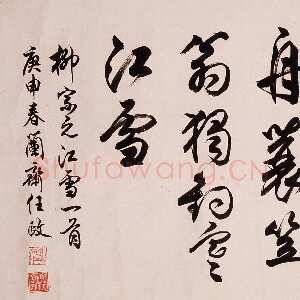 舟蓑笠
翁獨釣寒
江雪
柳宗元江雪一首
庚申春蘭齋任政
Shufawang.CN